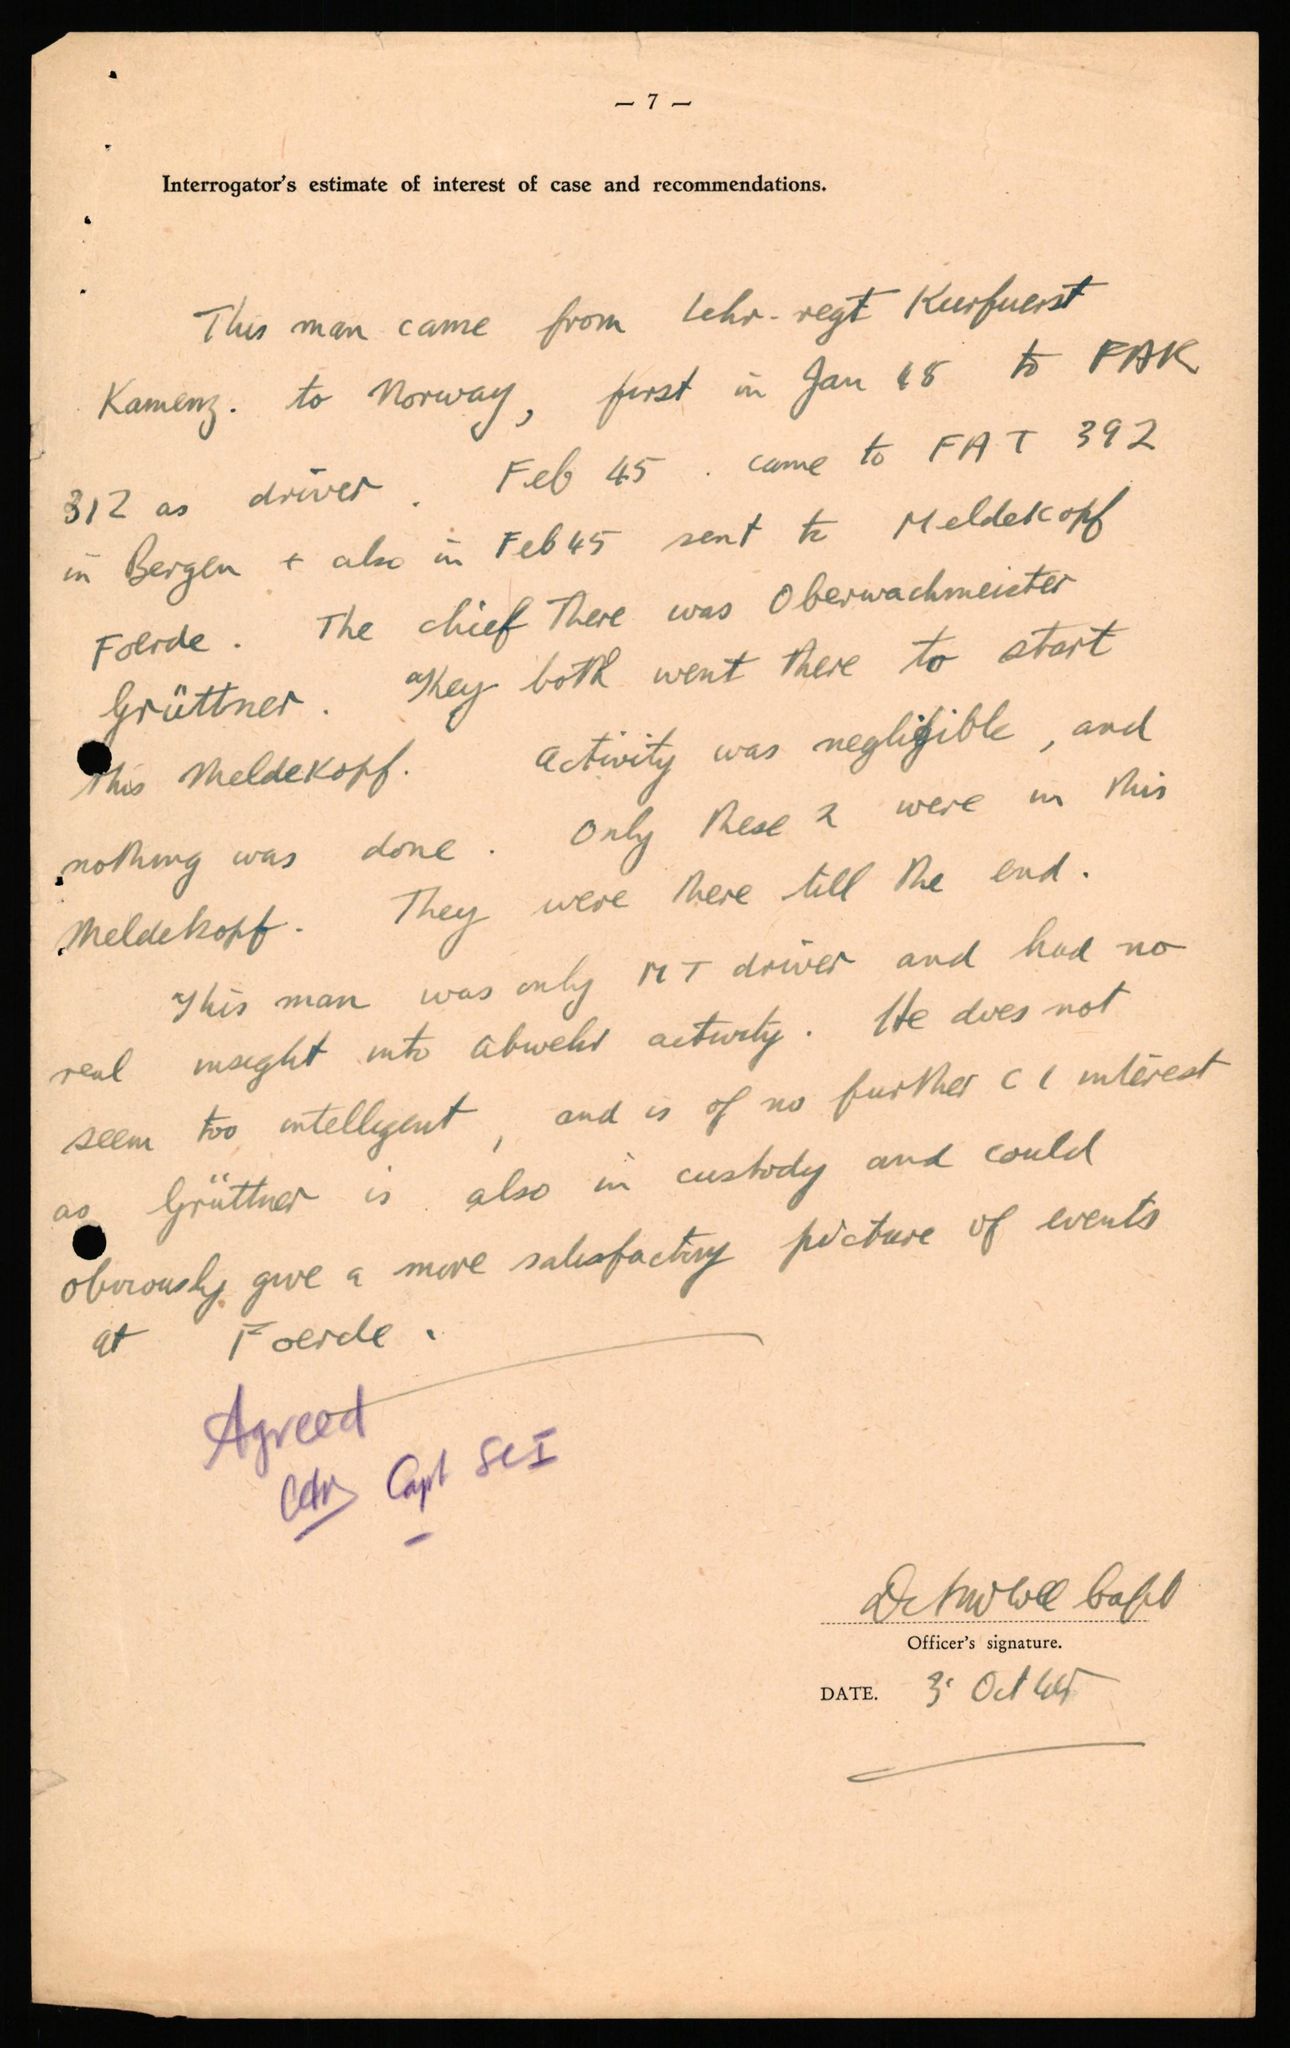 — 7 —
Interrogator's estimate of interest of case and recommendations.
This man came from Lehr-regt Kurfuerst
Kamenz. to Norway, first in Jan 45 to FAK
312 as driver. Feb 45. came to FAT 392
in Bergen + also in Feb 45 sent to Meldekopf
Foerde. The chief there was Oberwachmeister
Grüttner. They both went there to start
this Meldekopf. Activity was negligible, and
nothing was done. Only these 2 were in this
Meldekopf. They were there till the end.
This man was only MT driver and had no
real insight into Abwehr activity. He does not
seem too intelligent, and is of no further C I interest
as Grüttner is also in custody and could
obviously give a more satisfactory picture of events
at Foerde.
Agreed
Capt SCI
Capt
Officer's signature.
DATE. 3 Oct 45